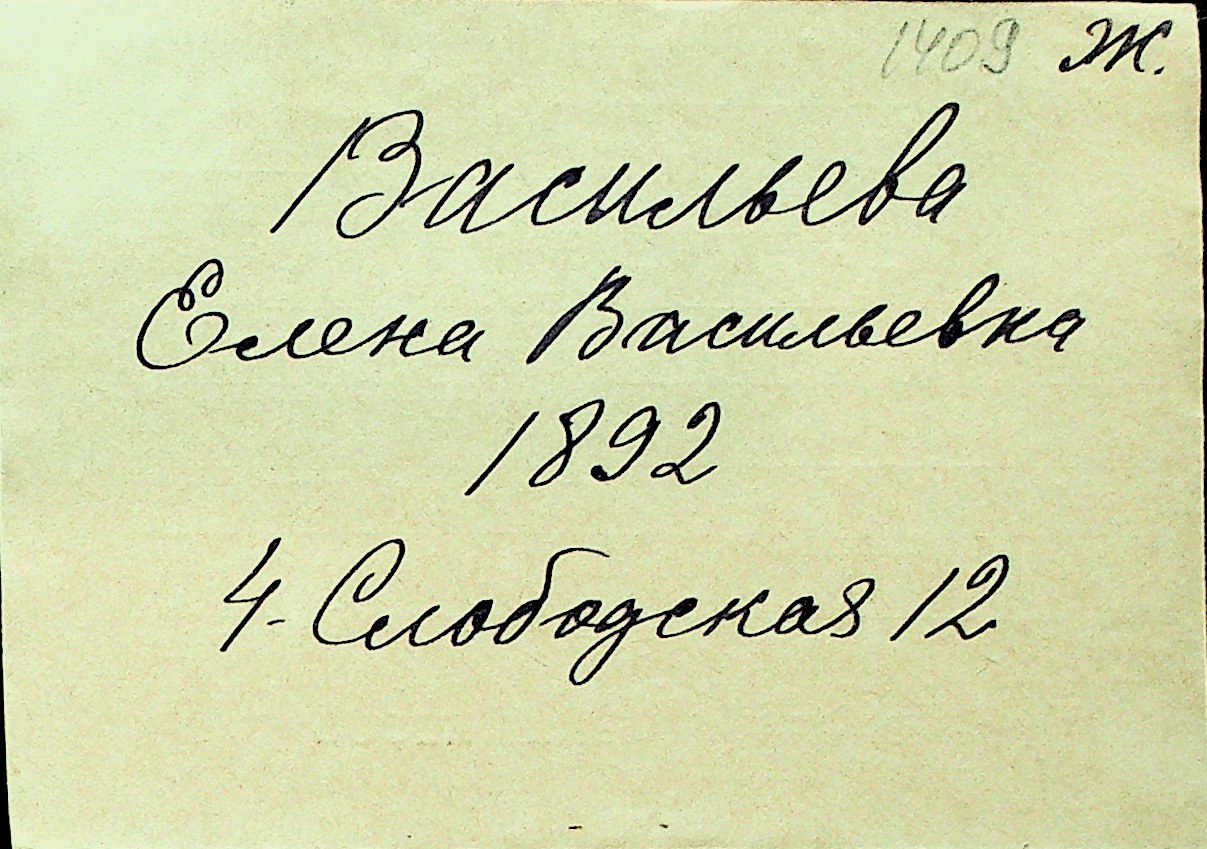 1409 Ж.
Васильева
Елена Васильевна
1892
4-Слободская 12